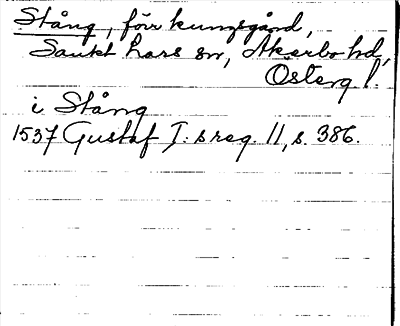 Stång, förr kungsgård,
Sankt Lars sn, Akerbo hd,
Österg l.
i Stång
1537 Gustaf I:s reg. 11, s. 386.